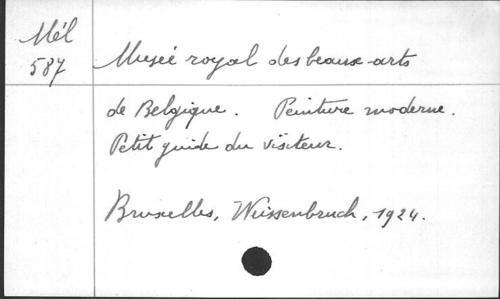 Mél
587
Musée royal des beaux-arts
de Belgique. Peinture moderne.
Petit guide du visiteur.
Bruxelles, Weissenbruch, 1924.